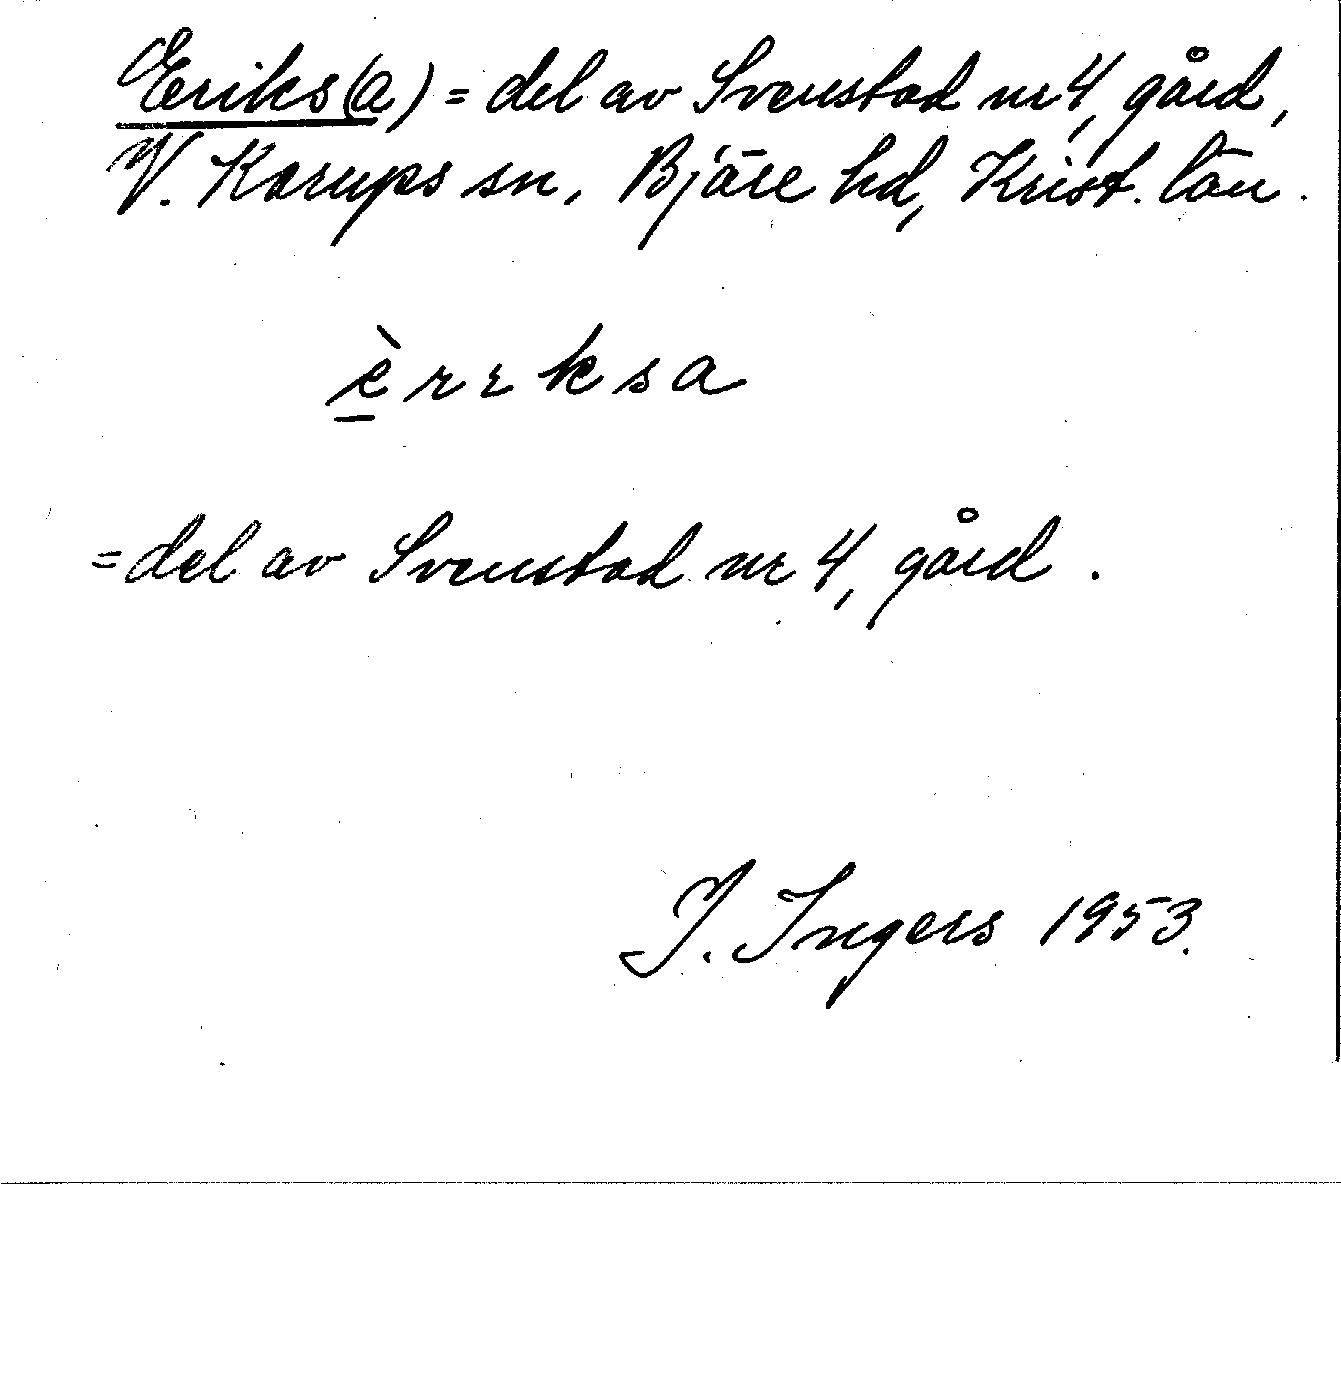 Eriks(a) = del av Svenstad nr 4, gård,
V. Karups sn, Bjäre hd, Krist. län.
è̱rɩksa
= del av Svenstad nr 4, gård.
I. Ingers 1953.